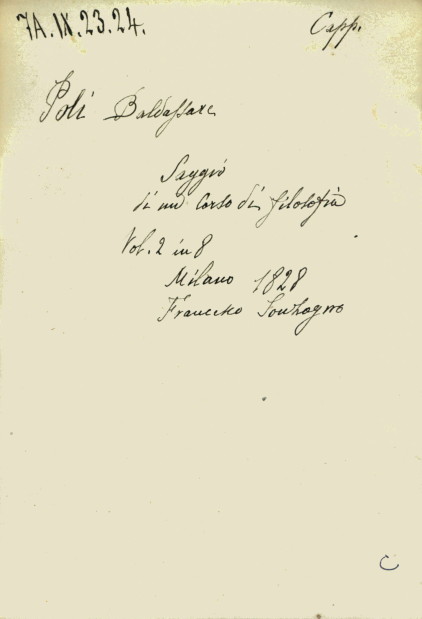 7A.IX.23.24.
Capp.
Poli Baldassare
Saggio
di un Corso di filosofia
Vol. 2 in 8
Milano 1828
Francesco Sonzogno
C